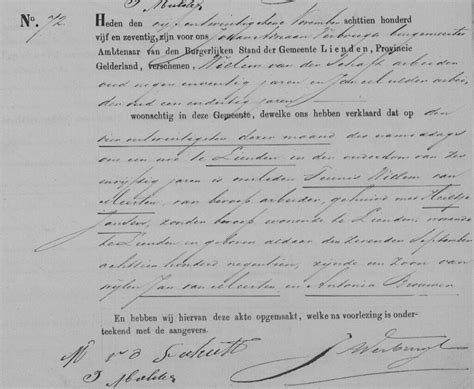 J Mulder
No. 72. Heden den vijfentwintigsten November achttien honderd
vijf en zeventig, zijn voor ons Johan Adriaan Verbrugh burgemeester
Ambtenaar van den Burgerlijken Stand der Gemeente Lienden, Provincie
Gelderland, verschenen, Willem van der Schaft arbeider
oud negen en veertig jaren en Jan Mulder arbei-
der, oud een en dertig jaren
woonachtig in deze Gemeente, dewelke ons hebben verklaard dat op den
twee en twintigsten dezer maand des namiddags
om een ure te Lienden en den ouderdom van zes
en vijftig jaren is overleden Teunis Willem van
Meerten, van beroep arbeider, gehuwd met
Jansen, zonder beroep wonende te Lienden, wonende
te Lienden en geboren aldaar den zevenden September
achttien honderd negentien, zijnde en zoon van
wijlen Jan van Meerten en Antonia Brouwer
En hebben wij hiervan deze akte opgemaakt, welke na voorlezing is onder-
teekend met de aangevers.
W v d Schaft
J Mulder
J Verbrugh